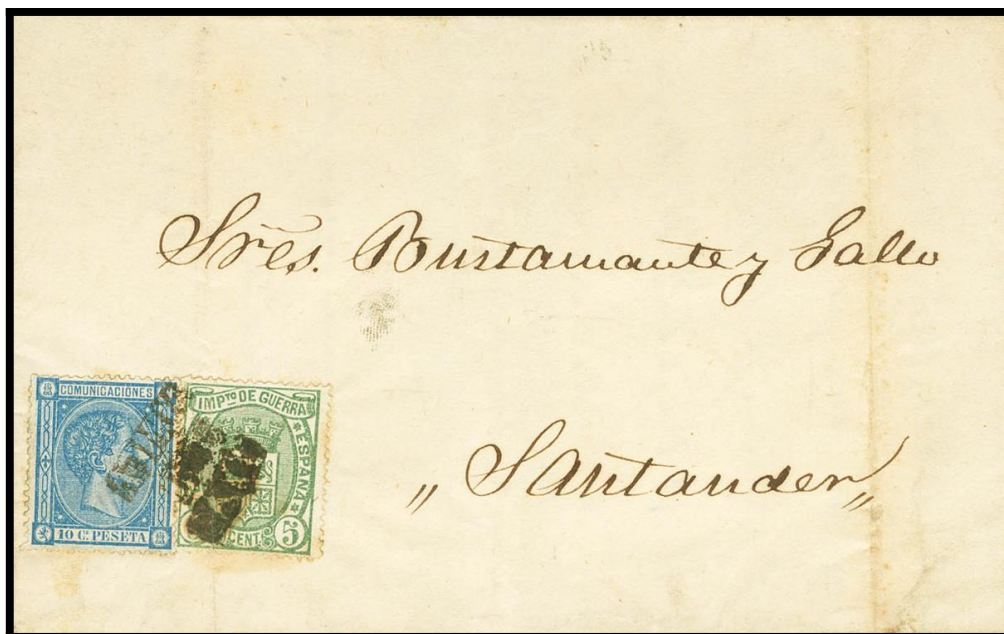 Sres. Bustamante y Gallo
„ Santander „
COMUNICACIONES
10 C. PESETA
IMPTO DE GUERRA
ESPAÑA
CENT 5